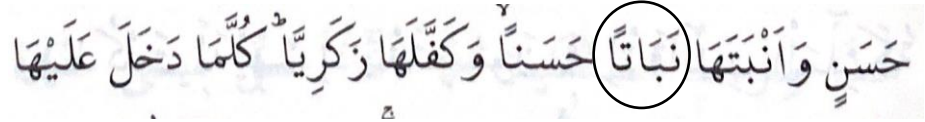 حَسَنٍ وَ اَنْۢبَتَهَا نَبَاتًا حَسَنًا ۙ وَ كَفَّلَهَا زَكَرِيَّا ؕ كُلَّمَا دَخَلَ عَلَيْهَا